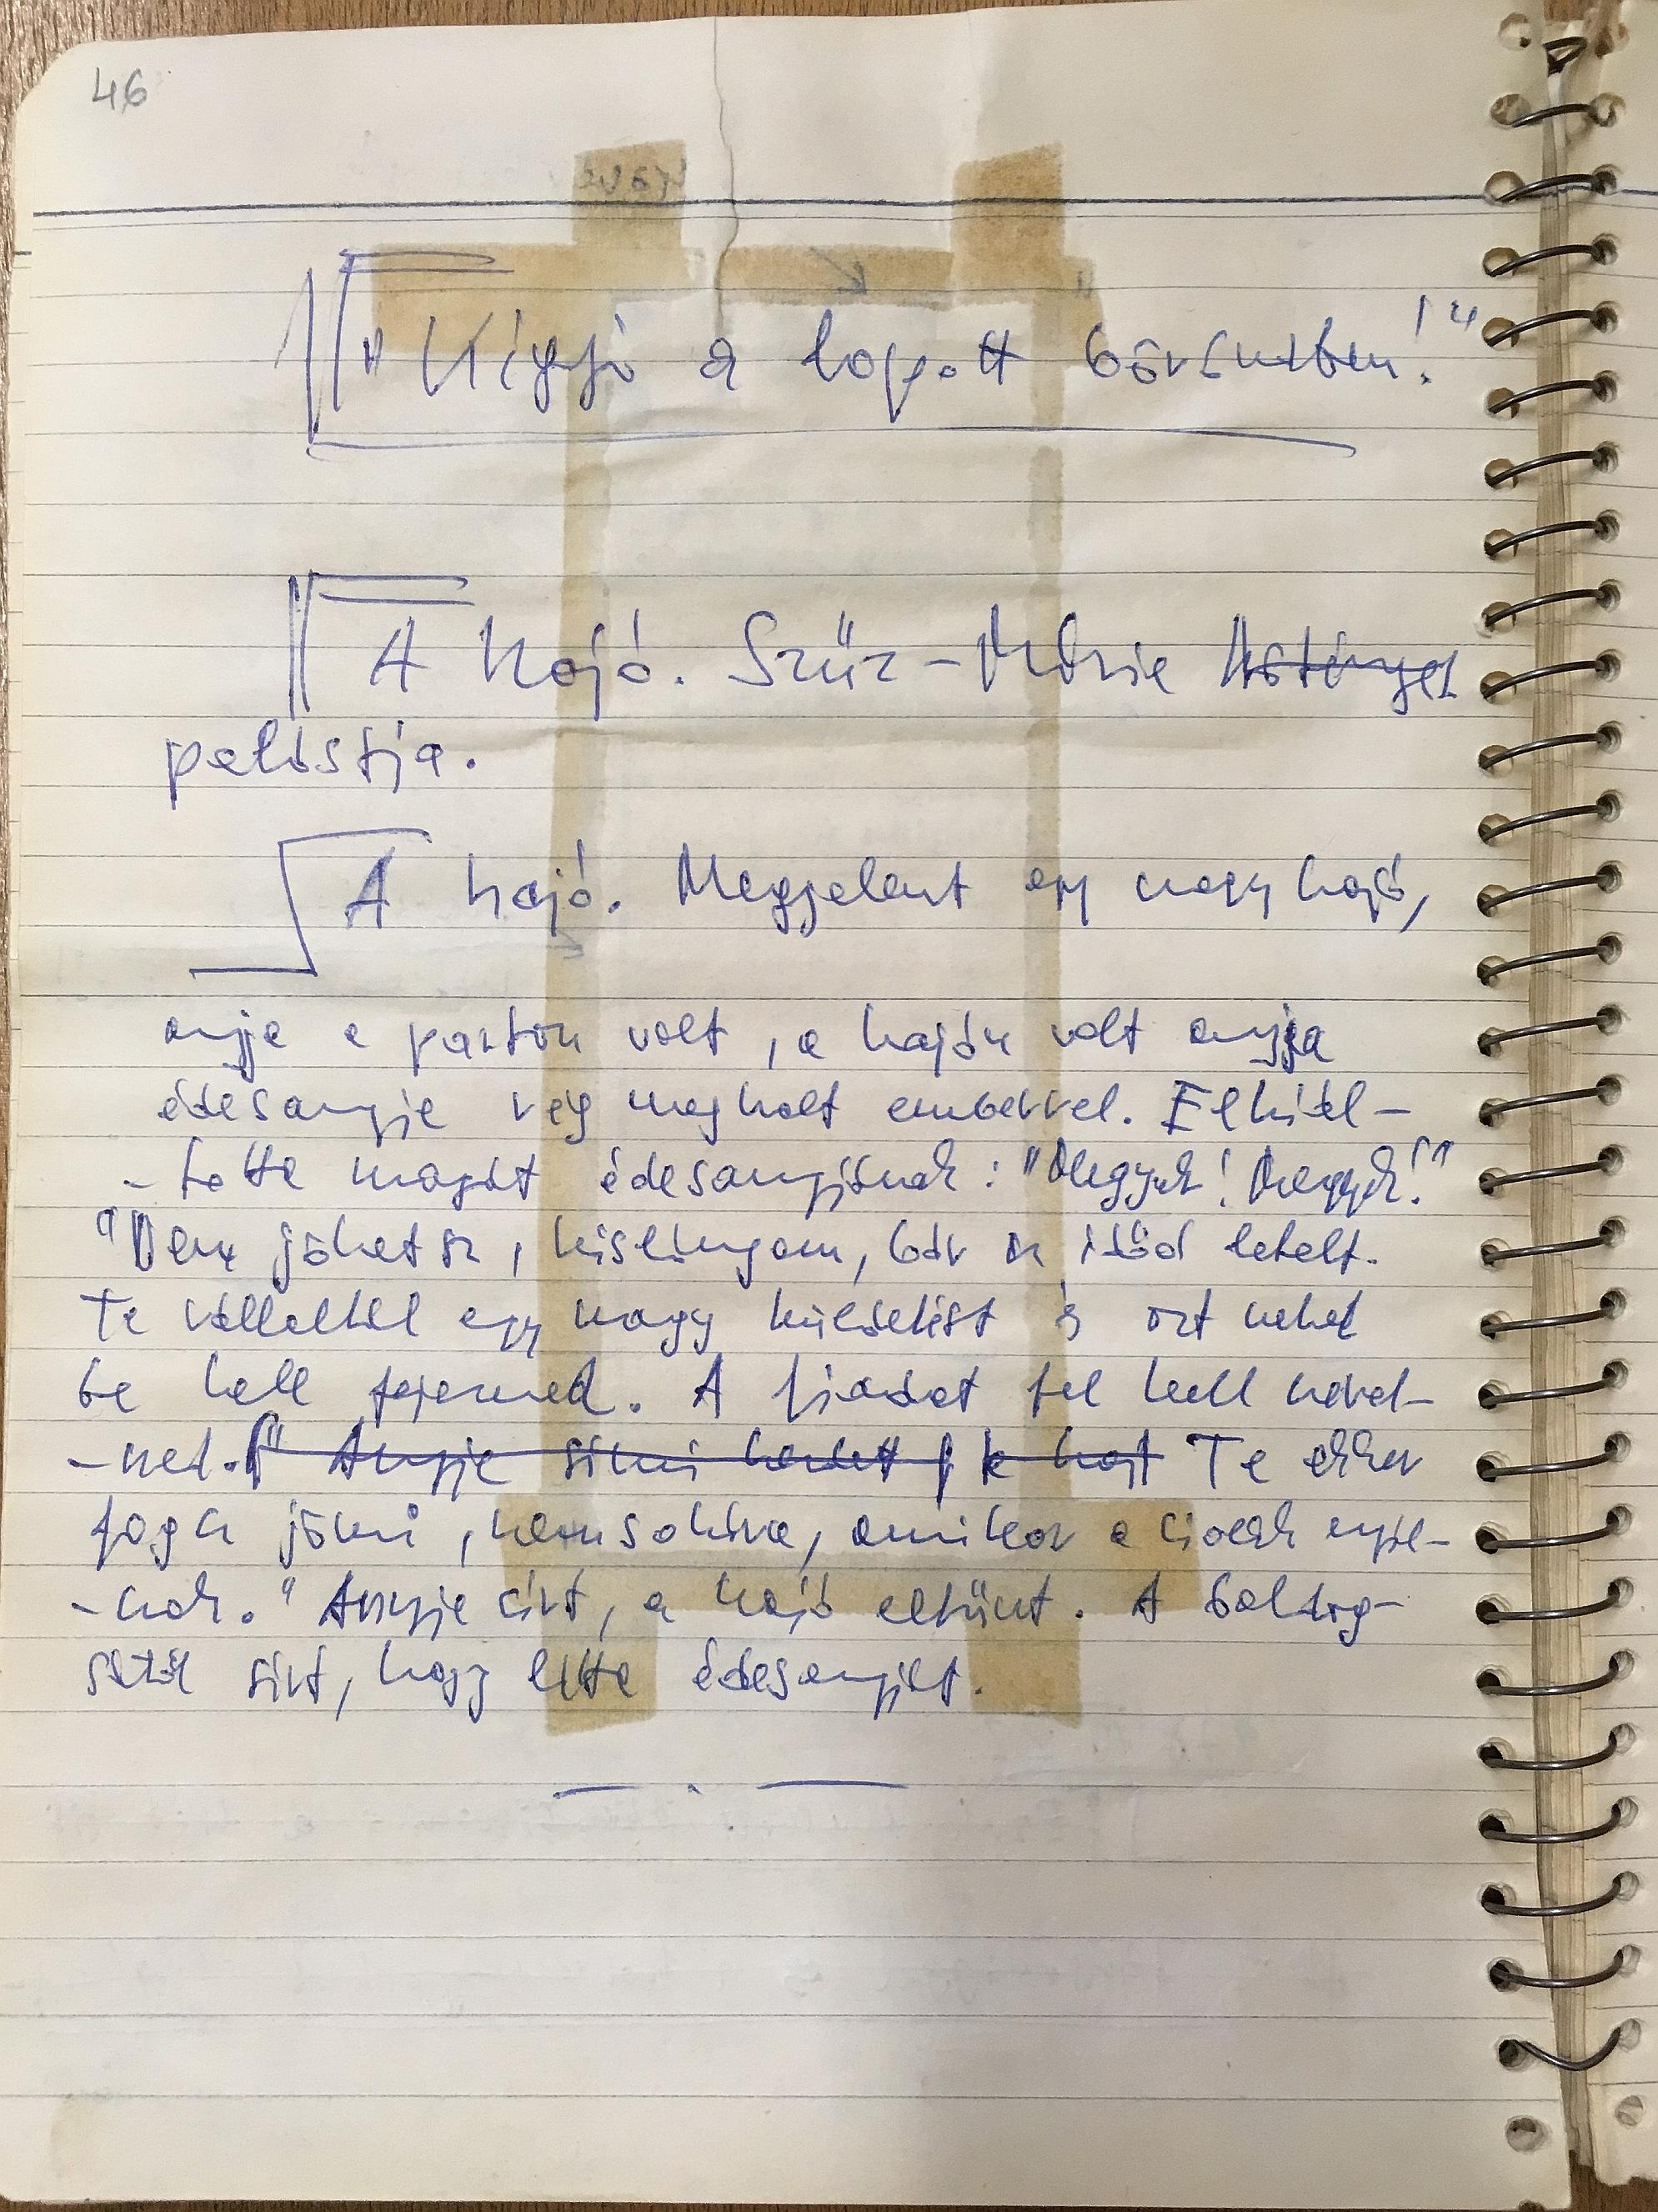 46
"Kígyó a lopott bőröndben!"
A hajó. Szűz-Mária
palástja.
A hajó. Megjelent egy nagy hajó,
anyja a parton volt, a hajón volt anyja
édesanyja rég meghalt emberrel. Elkiál-
-totta magát édesanyjának: "Megyek! Megyek!"
"Nem jöhetsz, kislányom, bár az időd letelt.
Te vállaltál egy nagy küldetést és ezt neked
be kell fejezned. A fiadat fel kell nevel-
-ned." Anyja sírni kezdett Te akkor
fogsz jönni, hamsokára, amikor a ciolák nyíl-
-nak." Anyja sírt, a hajó eltűnt. A boldog-
ságtól sírt, hogy látta édesanyját.